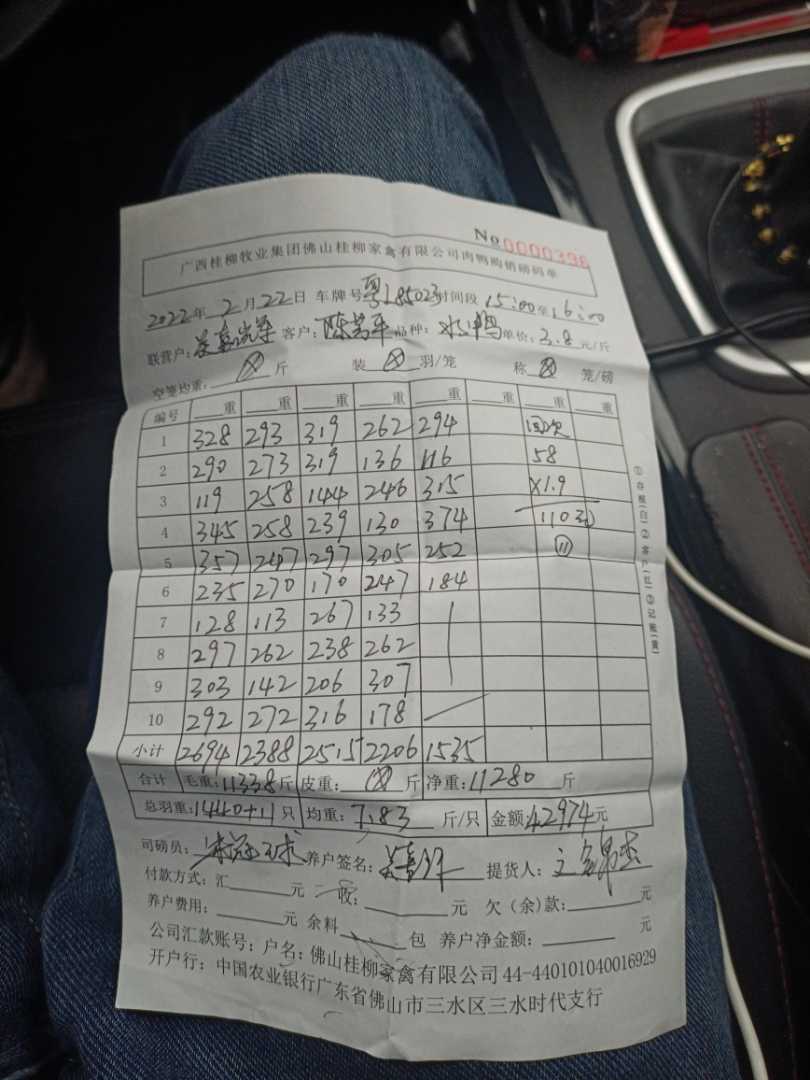 No 0000396
广西桂柳牧业集团佛山桂柳家禽有限公司肉鸭购销磅码单
2022年 2月22日 车牌号 粤L85023 时间段 15:00至16:00
联营户: 客户: 品种: 水鸭 单价: 3.8元/斤
空笼均重: 斤 装 羽/笼 称 笼/磅
编号 重 重 重 重 重 重 重 重
1 328 293 319 262 294
2 290 273 319 136 116 58
3 119 258 144 246 315 ×1.9
4 345 258 239 130 374 110
5 357 247 297 305 252 11
6 235 270 170 247 184
7 128 113 267 133
8 297 262 238 262
9 303 142 206 307
10 292 272 316 178
小计 2694 2388 2515 2206 1535
合计 毛重: 11338斤 皮重: 斤 净重: 11280 斤
总羽重: 1440+11只 均重: 7.83 斤/只 金额: 42974元
司磅员: 养户签名: 提货人:
付款方式: 汇 元 收: 元 欠(余)款: 元
养户费用: 元 余料 包 养户净金额: 元
公司汇款账号: 户名: 佛山桂柳家禽有限公司 44-440101040016929
开户行: 中国农业银行广东省佛山市三水区三水时代支行
①存根(白)②客户(红)③记账(黄)